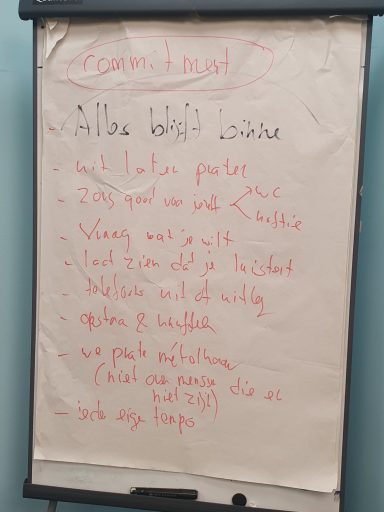 commitment
- Alles blijft binne
- uit laten praten
- Zorg goed voor jezelf < WC
koffie
- Vraag wat je wilt
- laat zien dat je luistert
- telefoons uit of uitleg
- opstaa &
- we prate met elkaar
(niet over mensen die er
niet zijn)
- iede eige tempo